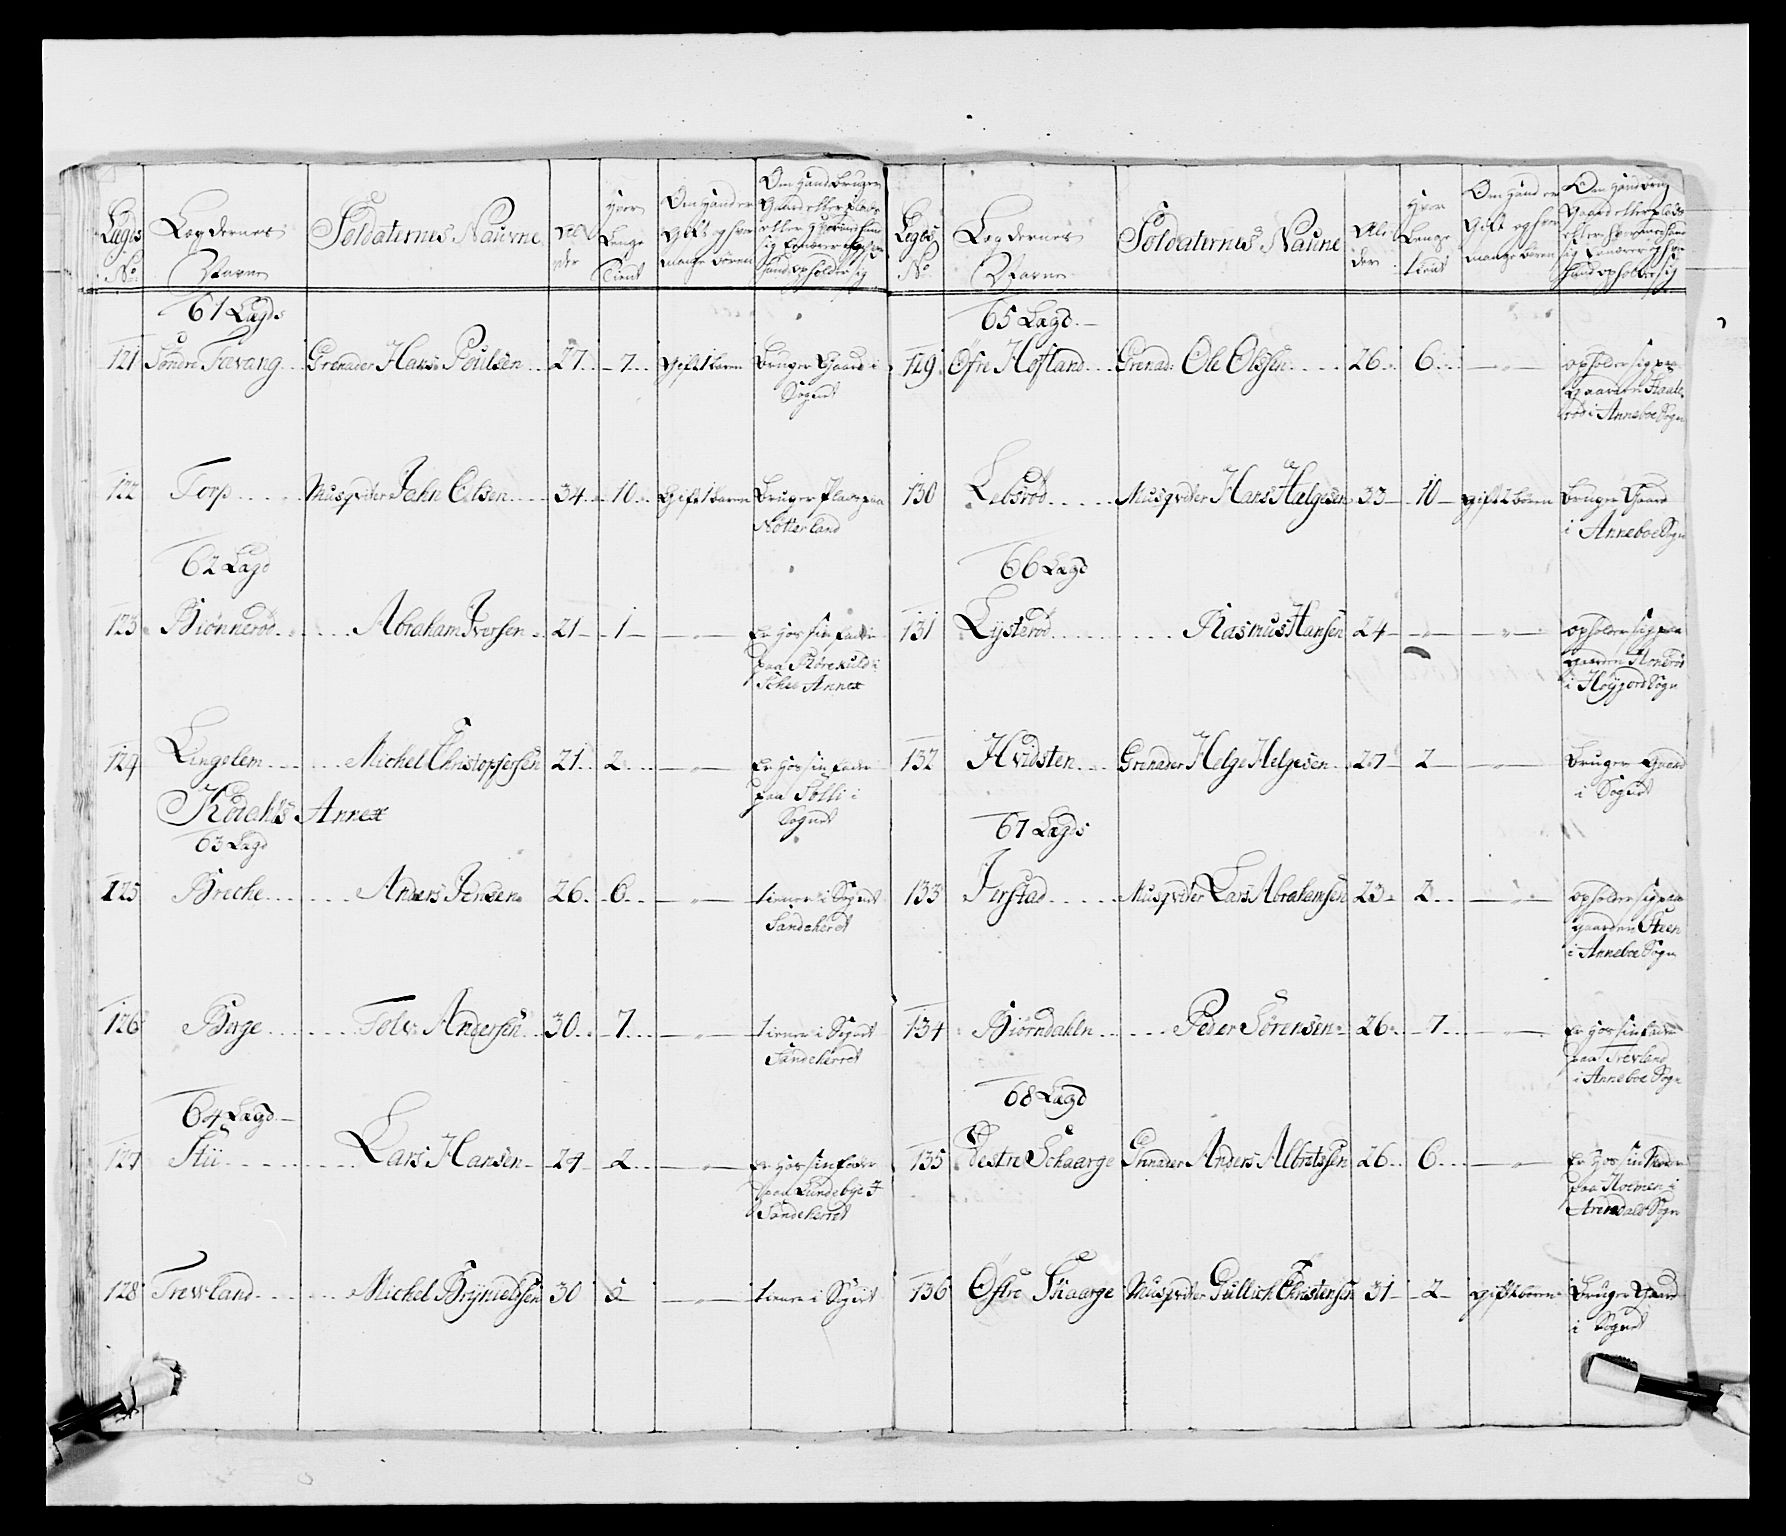 Lægds No. | Lægdernes Navne | Soldaternes Navne | Alder | Hvor Længe tient | Om Hand er Gift og hvor mange børen | Om Hand bruger Gaard eller plads eller hvor Hand opholder sig
61 Lægds
121 Söndre Tævang Grenader Hans Poulsen 27 7 Gift 1 baren bruger Gaard i
Sognet
122 Torp Musqvder Jahn Olsen 34 10 Gift 1 baren bruger plads paa
Nötterland
62 Lægd
123 Biönneröd Abraham Iversen 21 1 Er hos sin fader
paa
Annex
124 Lingelem Michel Christophersen 21 2 Er hos sin fader
paa Solli i
Sognet
Annex
63 Lægd
125 Breche Anders Jensen 26 6 tiener i Sognet
Sandeheret
126 Berge Tolv Andersen 30 7 tiener i Sognet
Sandeherret
64 Lægd
127 Stü Lars Hansen 24 2 er hos sin fader
paa Lundebye i
Sandeherret
128 Trevland Michel Brynielsen 30 5 tiener i Sognet
Lægds No. | Lægdernes Navne | Soldaternes Navne | Alder | Hvor Længe tient | Om Hand er Gift og hvor mange børen | Om Hand brug Gaard eller plads eller hvor Hand opholder sig
65 Lægd
129 Øfre Hofland Grenad: Ole Olssen 26 6 opholder sig paa
gaarden
i Anneboe Sogn
130 Lebsröd Musqvder Hans Hælgesen 33 10 gift 2 børen bruger Gaard
i Anneboe Sogn
66 Lægd
131 Lysteröd Rasmus Hansen 24 opholder sig paa
gaarden
i Höyjord Sogn
132 Hvidsten Grenader Helge Helgesen 27 2 bruger Gaard
i Sognet
67 Lægds
133 Jerstad Musqvder Lars Abrahamsen 23 2 opholder sig paa
gaarden Steen
i Anneboe Sogn
134 Biörndahln Peder Sörensen 26 7 Er hos sin fader
paa Trevland
i Anneboe Sogn
68 Lægd
135 Vestre Schaarge Grenader Anders Albretssen 26 6 Er hos sin Moder
paa Holmen i
Arendals Sogn
136 Østre Skaarge Musqvder Gullich Christensen 31 2 gift 2 børen Bruger Gaard
i Sognet